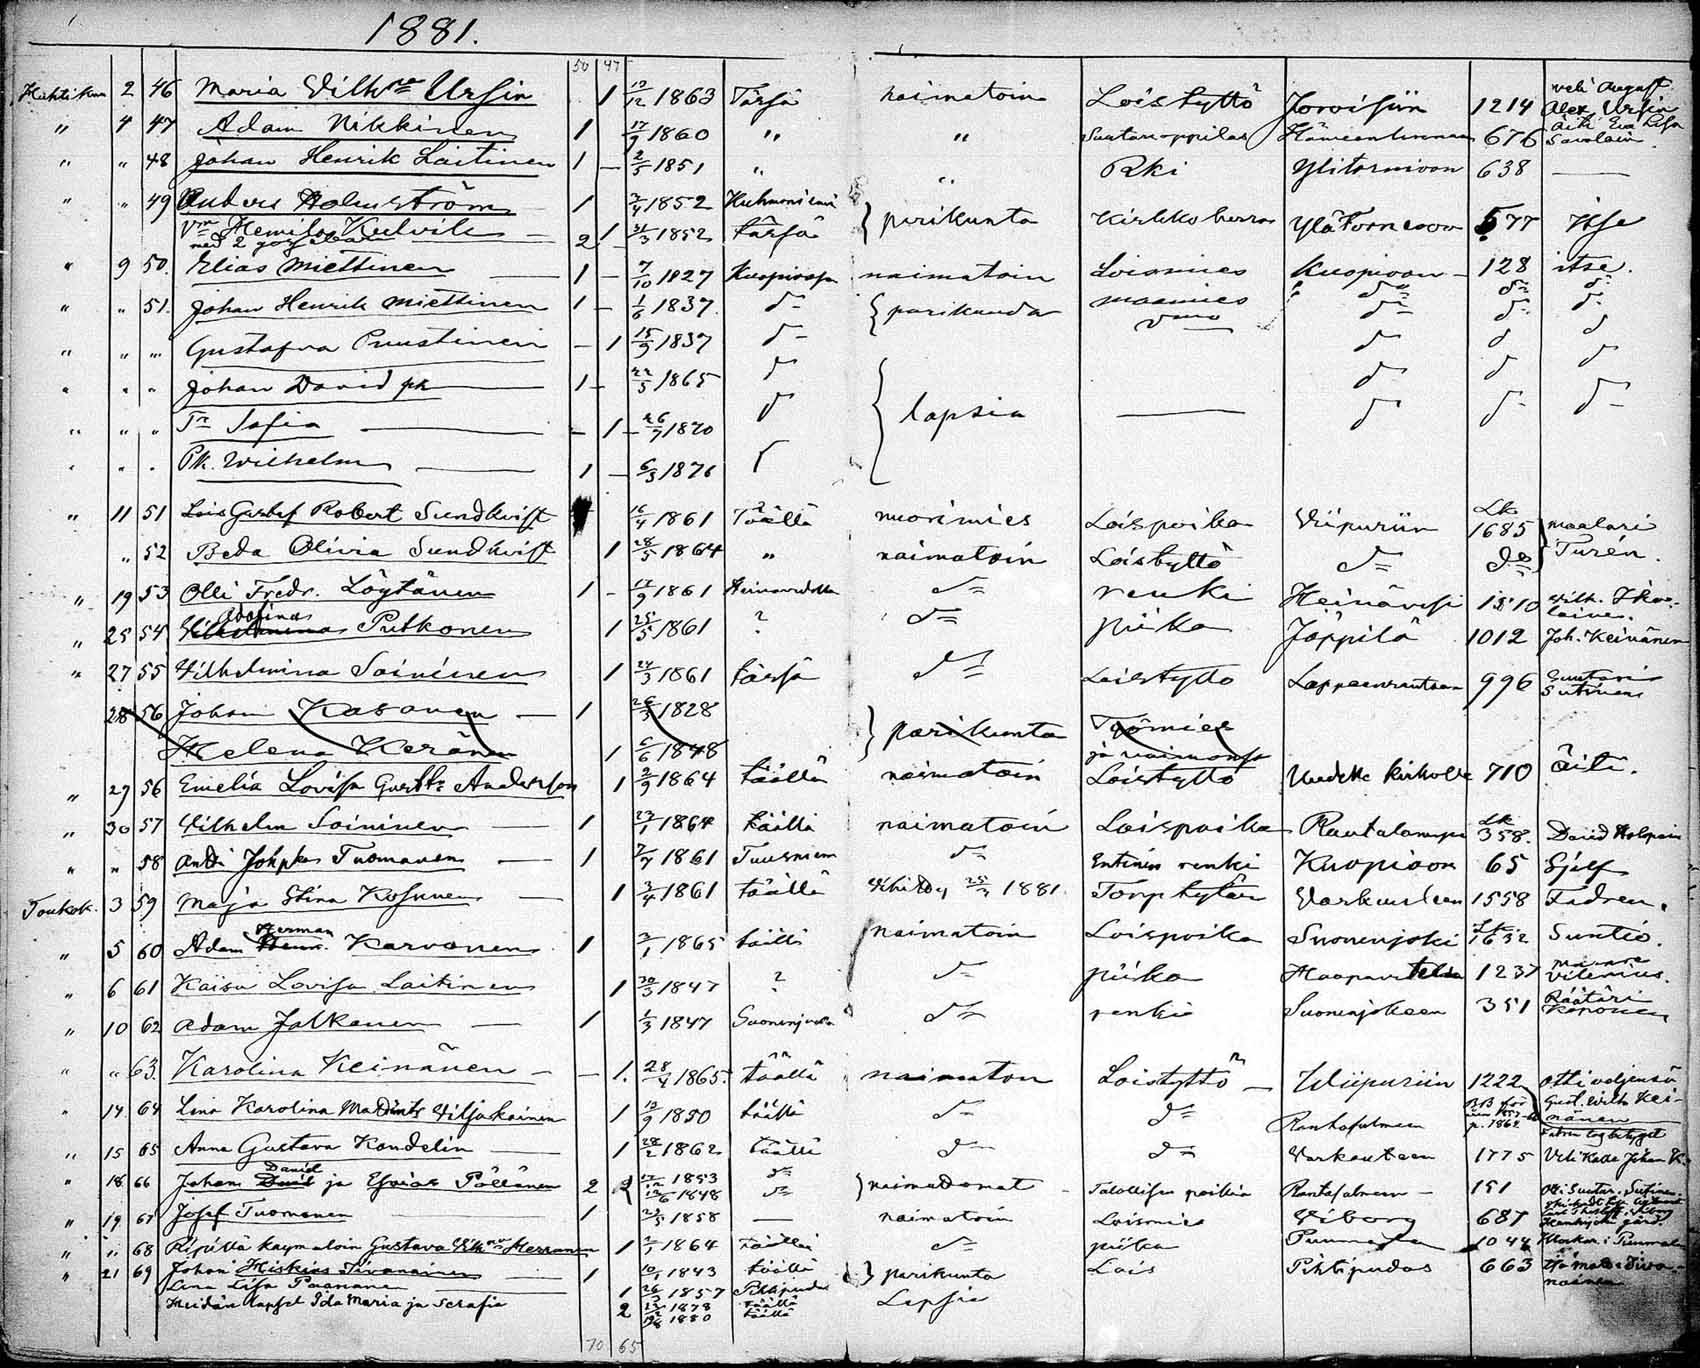 1881.
50 47
Huhtikuu 2 46 Maria Vilh:na Ursin 1 12/12 1863 Täsjä naimatoin Loistyttö Joroisiin 1214 veli August Alex. Ursin
" 4 47 Adam Nikkinen 1 17/9 1860 " " Suutarioppilas Hämeenlinnaan 676 Äiti Eva Lisa
" " 48 Johan Henrik Laitinen 1 — 2/5 1851 " " Rki Ylitornioon 638 —
" " 49 Anders Holmström 1 2/4 1852 Kuhmoniemi } parikunta Kirkkoherra YläTornioon 577 Itse
V:mo Hemilia Kulvik 2 1 31/3 1852 täsjä
med 2
" 9 50. Elias Miettinen 1 — 7/10 1827 Kuopiossa naimatoin Loismies Kuopioon 128 itse.
" " 51. Johan Henrik Miettinen 1 — 1/6 1837. d:o { parikunda maamies d:o d:o d:o
" " " Gustafva Puustinen — 1 15/9 1837 d:o vmo d:o d d
" " " Johan David pk 1 — 22/5 1865 d d:o d d
" " " Tr Sofia — 1 — 26/7 1870 d { lapsia — d d:o d:o
" " " Pk. Wilhelm 1 — 6/3 1876 d
" 11 51 Lois Gustaf Robert Sundkvist 16/4 1861 Täällä nuorimies Loispoika Viipuriin Lk 1685 } maalari
" 52 Beda Olivia Sundkvist 1 28/5 1864 " naimatoin Loistyttö d:o d:o Turén.
" 19 53 Olli Fredr. Löytänen 1 — 12/9 1861 Heinävedellä d:o renki Heinävesi 1510 Vilh.
" 25 54 Adolfina Putkonen 1 25/5 1861 ? d:o piika Jäppilä 1012 Joh. Keinänen
" 27 55 Vilhelmina Soininen 1 24/3 1861 täsjä d:o Loistyttö Lappeenrantaan 996 Suutari Sutinen
28 56 Johan Kasanen — 1 26/3 1828 } parikunta Työmies
Helena Keränen 1 6/6 1848 ja vaimonsa
" 29 56 Emelia Lovisa Gust:tr Andersson 1 2/9 1864 täällä naimatoin Loistyttö Uudelle kirkolle 710 äiti.
" 30 57 Vilhelm Soininen — 1 23/1 1864 täällä naimatoin Loispoika Rautalampi Lk 358. David Holopain
" " 58 Antti Johpka Tuomanen — 1 2/7 1861 Tuusniem d:o Entinen renki Kuopioon 65 Sjelf
Toukok. 3 59 Maja Stina Kosunen — 1 3/4 1861 täällä Vihitty 25/4 1881. Torp tytär Varkauteen 1558 Fadren.
" 5 60 Adam Herman Karvonen 1 3/1 1865 täällä naimatoin Loispoika Suonenjoki Lk 1632 Suntio.
" 6 61 Kaisa Lovisa Laitinen 1 30/3 1847 ? d:o piika Haapavetelle 1237 Vilenius.
" 10 62 Adam Jalkanen — 1 1/3 1847 Suonenjoella d:o renki Suonenjokeen 351 Räätäri Koponen
" " 63. Karolina Keinänen — — 1. 28/4 1865. täällä naimaton Loistyttö — Wiipuriin 1222 otti veljensä Gust. Wilh Keinänen
" 14 64 Lina Karolina Martintr Viljakainen 1 13/9 1850 täällä d:o d:o Rantasalmeen p. 1862
" 15 65 Anna Gustava Kondelin — 1 28/2 1862 täällä d:o d:o Varkauteen 1775 Veli Kalle Johan K.
" 18 66 Johan David ja Esaias Pöllänen 2 17/12 1853 d:o } naimadomat Talollisen poikia Rantasalmeen — 191
12/6 1848 d:o
" 19 67 Josef Tuomanen 1 23/5 1858 — naimatoin Loismies Viborg 687
" " 68 Ripillä kaymatoin Gustava Vilh:na Herranen 1 2/1 1864 täällä d:o piika Puumala 1044 Klockar. i Puumala
" 21 69 Johan Hiskias Tiranainen 1 10/1 1843 täällä } parikunta Lois Pihtipudas 663
Lina Lisa Paanane 1 26/3 1857 Pihtipudas
Heidän lapset Ida Maria ja Serafia 2 1878 täällä Lapsia
1880 täällä
70 65